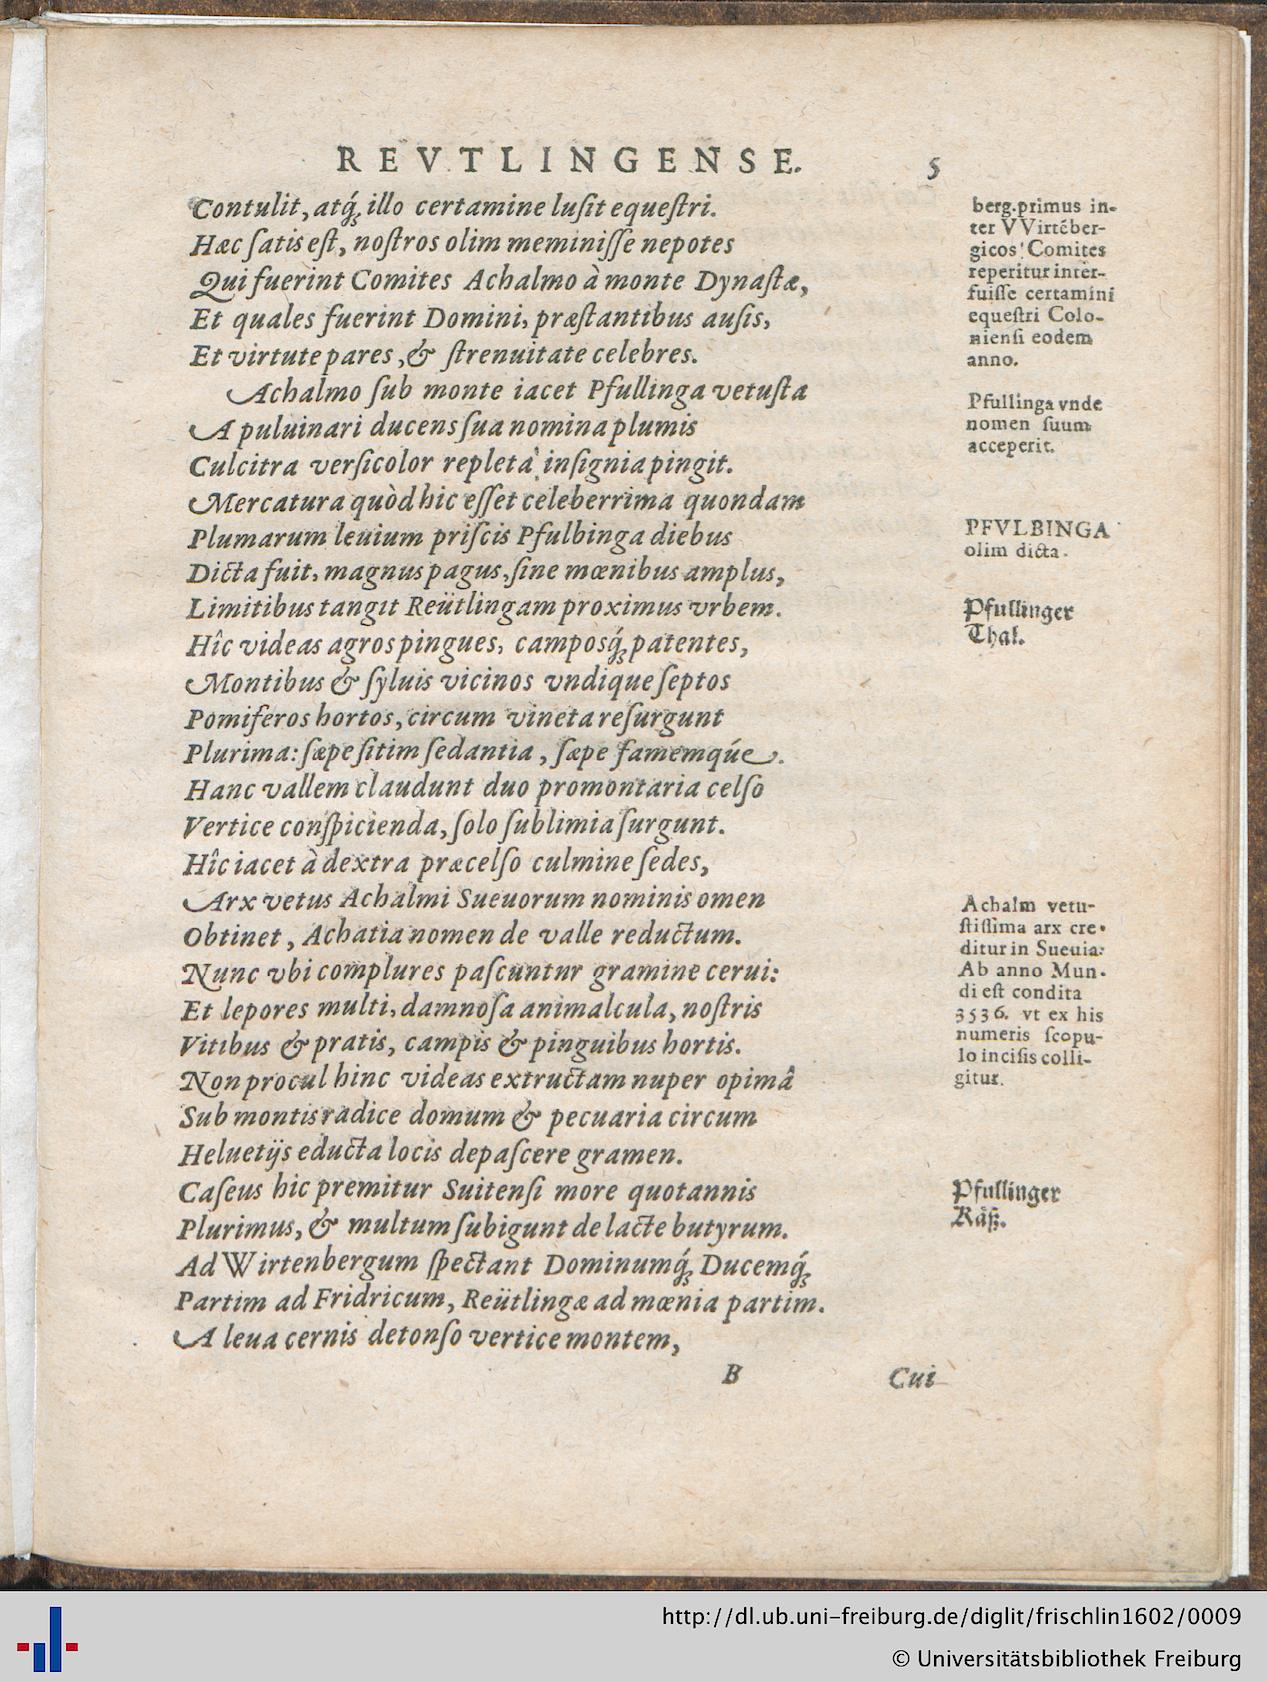 REVTLINGENSE. 5
Contulit, atq́; illo certamine luſit equeſtri.
Hæc ſatis eſt, noſtros olim meminiſſe nepotes
Qui fuerint Comites Achalmo à monte Dynaſtæ,
Et quales fuerint Domini, præſtantibus auſis,
Et virtute pares, & ſtrenuitate celebres.
Achalmo ſub monte iacet Pfullinga vetuſta
A puluinari ducens ſua nomina plumis
Culcitra verſicolor repleta inſignia pingit.
Mercatura quòd hic eſſet celeberrima quondam
Plumarum leuium priſcis Pfulbinga diebus
Dicta fuit, magnus pagus, ſine mœnibus amplus,
Limitibus tangit Reütlingam proximus vrbem.
Hîc videas agros pingues, camposq́; patentes,
Montibus & ſyluis vicinos vndique ſeptos
Pomiferos hortos, circum vineta reſurgunt
Plurima: ſæpe ſitim ſedantia, ſæpe famemqúe.
Hanc vallem claudunt duo promontaria celſo
Vertice conſpicienda, ſolo ſublimia ſurgunt.
Hîc iacet à dextra præcelſo culmine ſedes,
Arx vetus Achalmi Sueuorum nominis omen
Obtinet, Achatia nomen de valle reductum.
Nunc vbi complures paſcuntur gramine cerui:
Et lepores multi, damnoſa animalcula, noſtris
Vitibus & pratis, campis & pinguibus hortis.
Non procul hinc videas extructam nuper opimâ
Sub montis radice domum & pecuaria circum
Heluetijs educta locis depaſcere gramen.
Caſeus hic premitur Suitenſi more quotannis
Plurimus, & multum ſubigunt de lacte butyrum.
Ad Wirtenbergum ſpectant Dominumq́; Ducemq́;
Partim ad Fridricum, Reütlingæ ad mœnia partim.
A leua cernis detonſo vertice montem,
B Cui
berg. primus in-
ter VVirtēber-
gicos Comites
reperitur inter-
fuiſſe certamini
equeſtri Colo-
nienſi eodem
anno.
Pfullinga vnde
nomen ſuum
acceperit.
PFVLBINGA
olim dicta.
Pfullinger
Thal.
Achalm vetu-
ſtiſſima arx cre-
ditur in Sueuia:
Ab anno Mun-
di eſt condita
3536. vt ex his
numeris ſcopu-
lo inciſis colli-
gitur.
Pfullinger
Käß.
http://dl.ub.uni-freiburg.de/diglit/frischlin1602/0009
© Universitätsbibliothek Freiburg